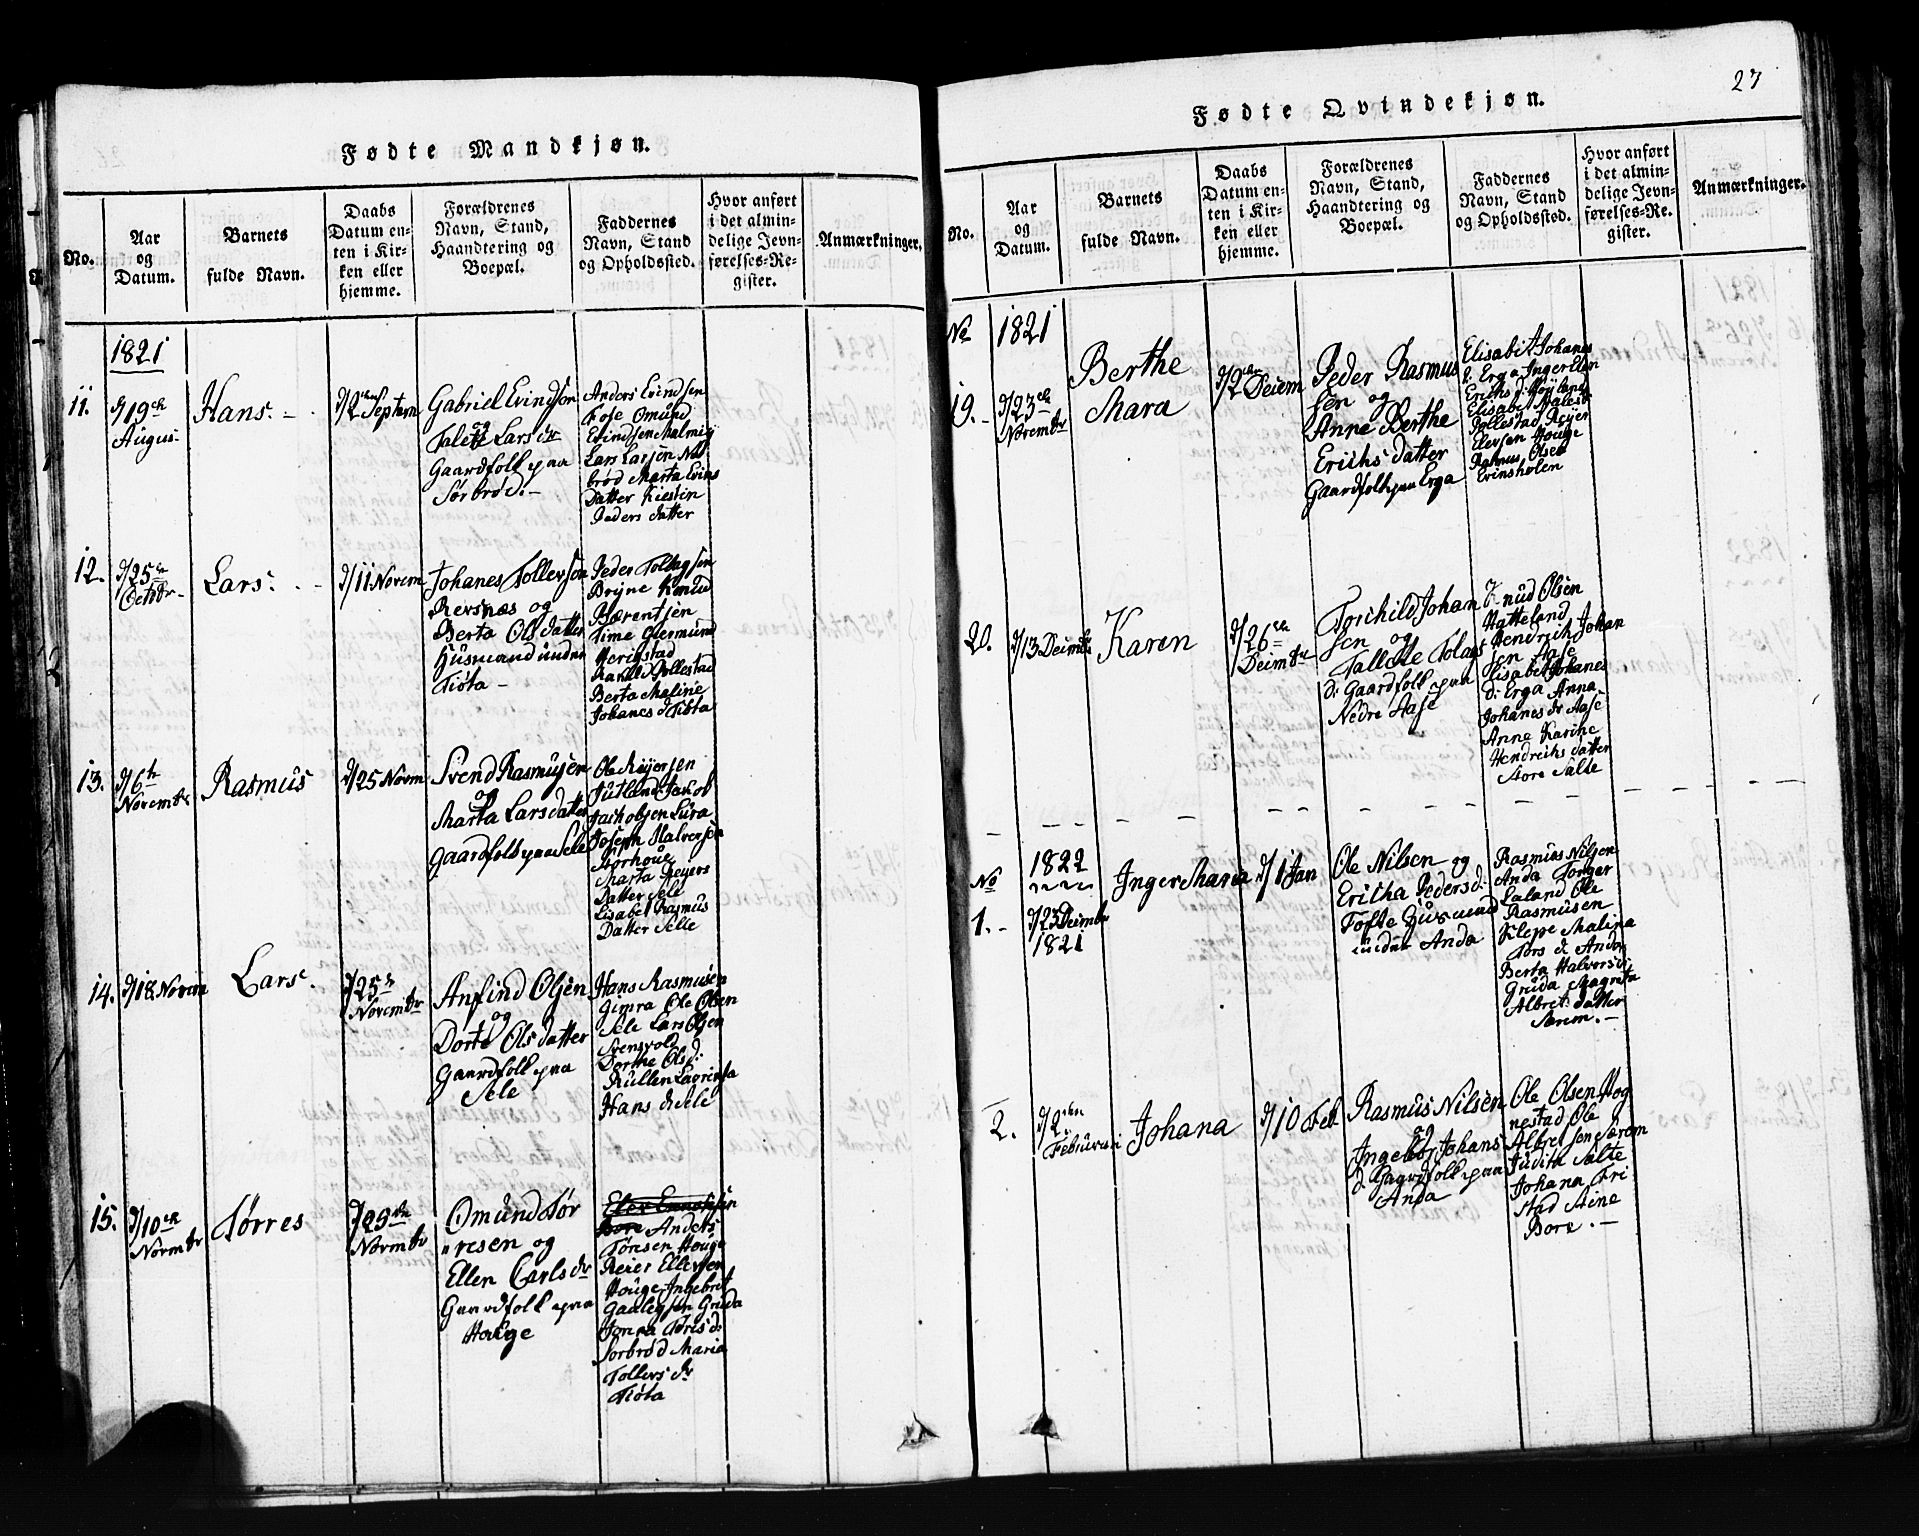 Fødte Mandkjøn.
No.
Aar
og
Datum.
Barnets
fulde Navn.
Daabs
Datum en-
ten i Kir-
ken eller
hjemme.
Forældrenes
Navn, Stand,
Haandtering og
Boepæl.
Faddernes
Navn, Stand
og Opholdssted.
Hvor anført
i det almin-
delige Jevn-
førelses-Re-
gister.
Anmærkninger.
1821
11.
d/19de
August
Hans.
d/2den Septem
Gabriel Evindsen
og
Talete Larsdr
Gaardfolk paa
Sørbrød.
Anders Evindsen
Tose Omund
Evindsen Malmig
Lars Larsen
brød Marta Evins
Datter Kiestin
Peders datter
12.
d/25de
Octobr
Lars.
d/11 Novem
Johanes Tollevsen
Revsnæs og
Berta Olsdatter
Husmand under
Tiøta
Peder Tollagsen
Bryne Knud
Bærentsen
Time Giermund
Herigstad
Rachel Pollestad
Berta Maline
Johanes d Tiøta
13.
d/6te
Novembr
Rasmus
d/25 Novm
Svend Rasmusen
og
Marta Larsdatter
Gaardfolk paa Sele
Ole Reyersen
Jutland Jakob
Jackobsen Lura
Joseph Halversen
Storhoue
Marta Reyers
Datter Sele
Lisabet Rasmus
Datter Selle
14.
d/18 Novem
Lars.
d/25de
Novembr
Anfind Olsen
og
Dorte Olsdatter
Gaardfolk paa
Sele
Hans Rasmusen
Gimra Ole Olsen
Sele Lars Olsen
Svensvold
Dorthe Olsd:
Kullen Lavrensa
Hans d Sele
15.
d/10de
Novmbr
Tørres
d/25de
Novmbr
Omund Tør
resen og
Ellen Carlsdr
Gaardfolk paa
Houge
Bore Anders
Tønsen Houge
Reier Ellevsen
Houge Ingebret
Gaulegsen Gruda
Jonna Torisd:
Sorbrød Maria
Tollevsdr
Tiøta
27
Fødte Qvindekjøn.
No.
Aar
og
Datum.
Barnets
fulde Navn.
Daabs
Datum en-
ten i Kir-
ken eller
hjemme.
Forældrenes
Navn, Stand,
Haandtering og
Boepæl.
Faddernes
Navn, Stand
og Opholdssted.
Hvor anført
i det almin-
delige Jevn-
førelses-Re-
gister.
Anmærkninger.
No
1821
19.
d/23de
Novembr
Berthe
Mara
d/2den Deiem
Peder Rasmus
sen og
Anne Berthe
Erichs datter
Gaardfolk paa Erga
Elisabet Johanes
d. Erga Inger Elen
Erichs d Høyland
Elisabet Malest
Pollestad Reyer
Elevsen Houge
Rasmus Olsen
Evinsholen
20.
d/13 Deimbr
Karen
d/26de
Deimbr
Torchild Johan
sen og
Tallete Tolags
d: Gaardfolk paa
Nedre Aase
Knud Olsen
Hatteland
Hendrich Johan
sen Aase
Elisabet Johanes
d: Erga Anna
Johanes dr Aase
Anne Karine
Hendrichs datter
Store Salte
No
1822
1.
d/23 Deimbr
1821
Inger Maria
d/1 Jan
Ole Nilsen og
Ericha Pedersd:
Tofte Husmend
under Anda
Rasmus Nilsen
Anda Torger
Laland Ole
Rasmusen
Klepe Malina
Tors d Anda
Berta Halvorsd:
Gruda Magreta
Albret: datter
Særem.
2.
d/2den
Februvari
Johana
d/10 Feb
Rasmus Nilsen
og
Ingebor Johans
d: Gaardfolk paa
Anda
Ole Olsen Hog
nestad Ole
Albretsen Særem
Judith Salte
Johana Fri
stad Stine
Bore.